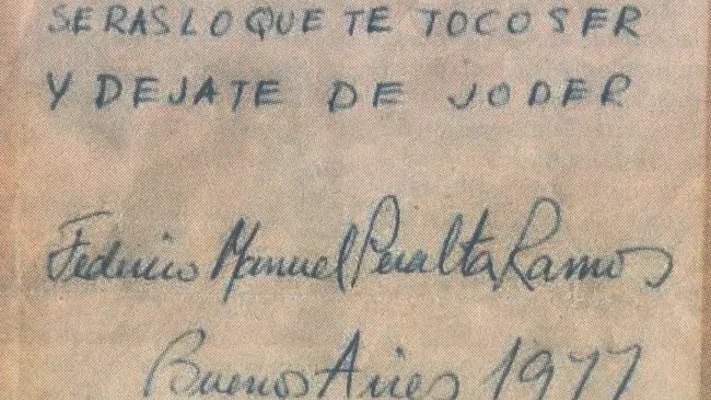 SERAS LO QUE TE TOCO SER
Y DEJATE DE JODER
Federico Manuel Peralta Ramos
Buenos Aires 1977